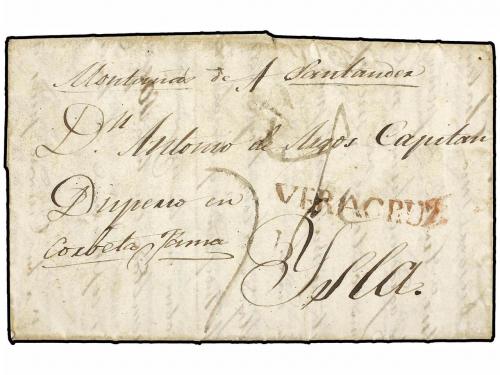 Montaña de A Santander
Dn Antonio de Hoyos Capitan
Disperso en
VERACRUZ
corbeta Fama
Ysla.